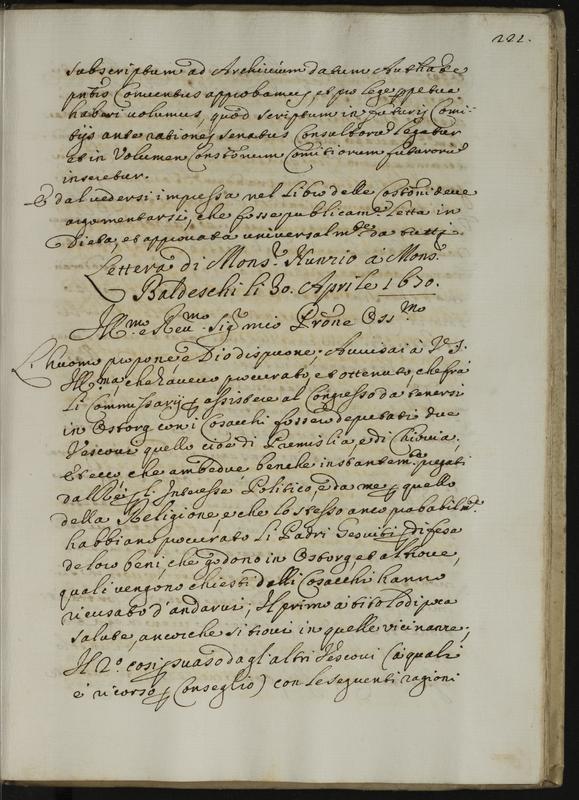 222.
subscriptum ad Archivium datum Authate
pntis Conventus approbamus, et pro lege ppetua
haberi volumus, quod scriptum in futuris Comi-
tijs ante rationes Senatus Consultorũ legatur
et in Volumen Constõnum Comitiorum futurorũ
inseretur.
E dal vedersi impressa nel Libro delle Costõni deve
argomentarsi, che fosse publicamte letta in
Dieta, et approvata universalmte da tutti
Lettera di Monsr. Nunzio à Monsr.
Baldeschi li 30. Aprile 1670.
Illmo e Revmo Sigr mio Prõne Ossmo
L'huomo propone, e Dio dispuone; Avvisai à V. S.
Illma, che havevo procurato, et ottenuto, che frà
li Commissarij p assistere al Congresso da tenersi
in Ostrog con i Cosacchi fossero deputati due
Vescovi quello cioè di Premislia, e di Chiovia,
et ecco che ambedue benche instantemte pregati
dal Rè p l'Interesse Politico, e da me p quello
della Religione, e che lo stesso anco probabilmte
habbiano procurato li Padri Gesuiti p difesa
de loro beni, che godono in Ostrog, et altrove,
quali vengono chiesti dalli Cosacchi hanno
ricusato d'andarvi; Il primo à titolo di poca
salute, ancorche si trovi in quelle vicinanze;
Il 2o. così psuaso dagl'altri Vescovi (à quali
è ricorso p Conseglio) con le seguenti ragioni